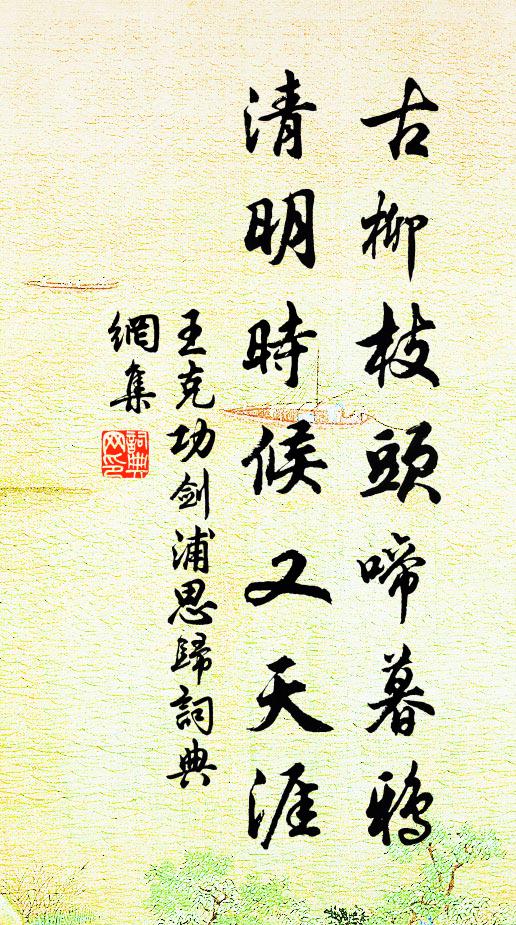 古柳枝頭啼暮鴉
清明時候又天涯
王克功劍浦思歸詞典
網集
詞典
网印